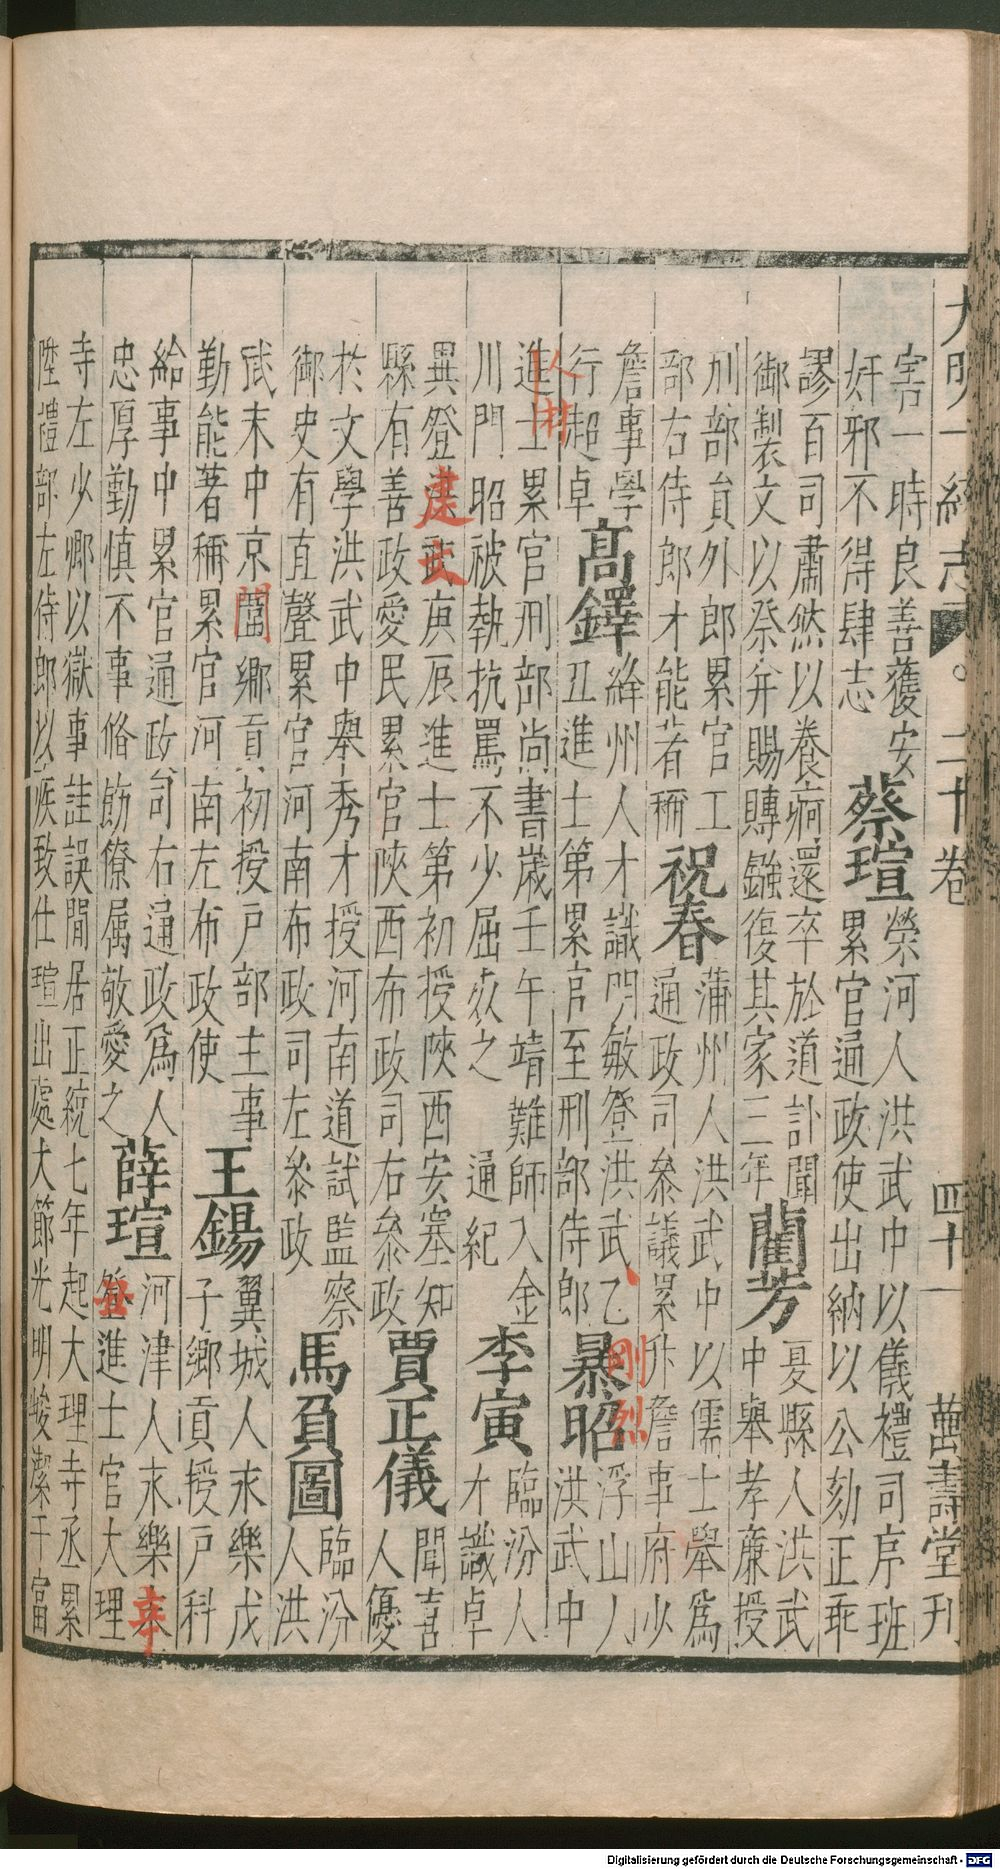 大明一統志 二十卷 四十一 萬壽堂刊
害一時良善獲安
奸邪不得肆志
蔡瑄
榮河人洪武中以儀禮司序班
累官通政使出納以公劾正乖
謬百司肅然以養痾還卒於道訃聞
御製文以祭并賜賻鏹復其家三年
藺芳
夏縣人洪武
中舉孝廉授
刑部員外郎累官工
部右侍郎才能著稱
祝春
蒲州人洪武中以儒士舉為
通政司叅議累升詹事府少
詹事學
行超卓
高鐸
絳州人才識明敏登洪武乙
丑進士第累官至刑部侍郎
暴昭
剛烈
浮山人
洪武中
進士累官刑部尚書歲壬午靖難師入金
川門昭被執抗罵不少屈死之 通紀
李寅
臨汾人
才識卓
異登洪武庚辰進士第初授陝西安塞知
建文
縣有善政愛民累官陝西布政司右叅政
賈正儀
聞喜
人優
於文學洪武中舉秀才授河南道試監察
御史有直聲累官河南布政司左叅政
馬負圖
臨汾
人洪
武末中京闈鄉貢初授戶部主事
勤能著稱累官河南左布政使
王錫
翼城人永樂戊
子鄉貢授戶科
給事中累官通政司右通政為人
忠厚勤慎不事脩飭僚属敬愛之
薛瑄
河津人永樂辛
丑登進士官大理
寺左少卿以獄事詿誤閒居正統七年起大理寺丞累
陞禮部左侍郎以疾致仕瑄出處大節光明峻潔干富
Digitalisierung gefördert durch die Deutsche Forschungsgemeinschaft - DFG